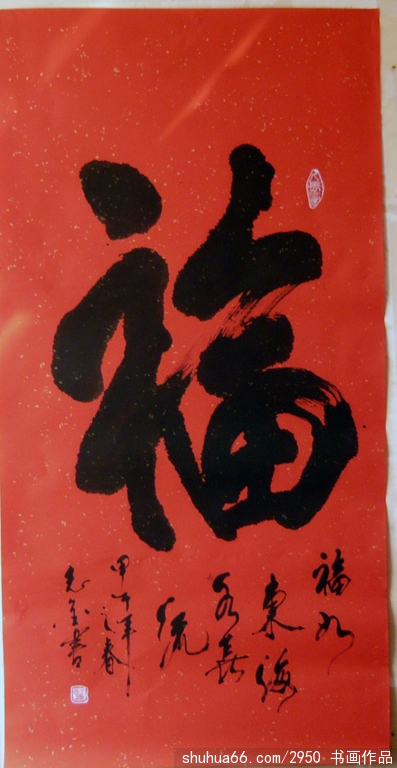 福
福如
東海
水長
流
甲午年之春
書
shuhua66.com/2950 书画作品